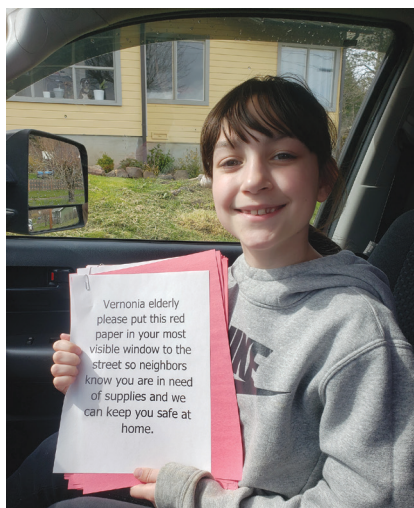 Vernonia elderly
please put this red
paper in your most
visible window to the
street so neighbors
know you are in need
of supplies and we
can keep you safe at
home.
NIKE